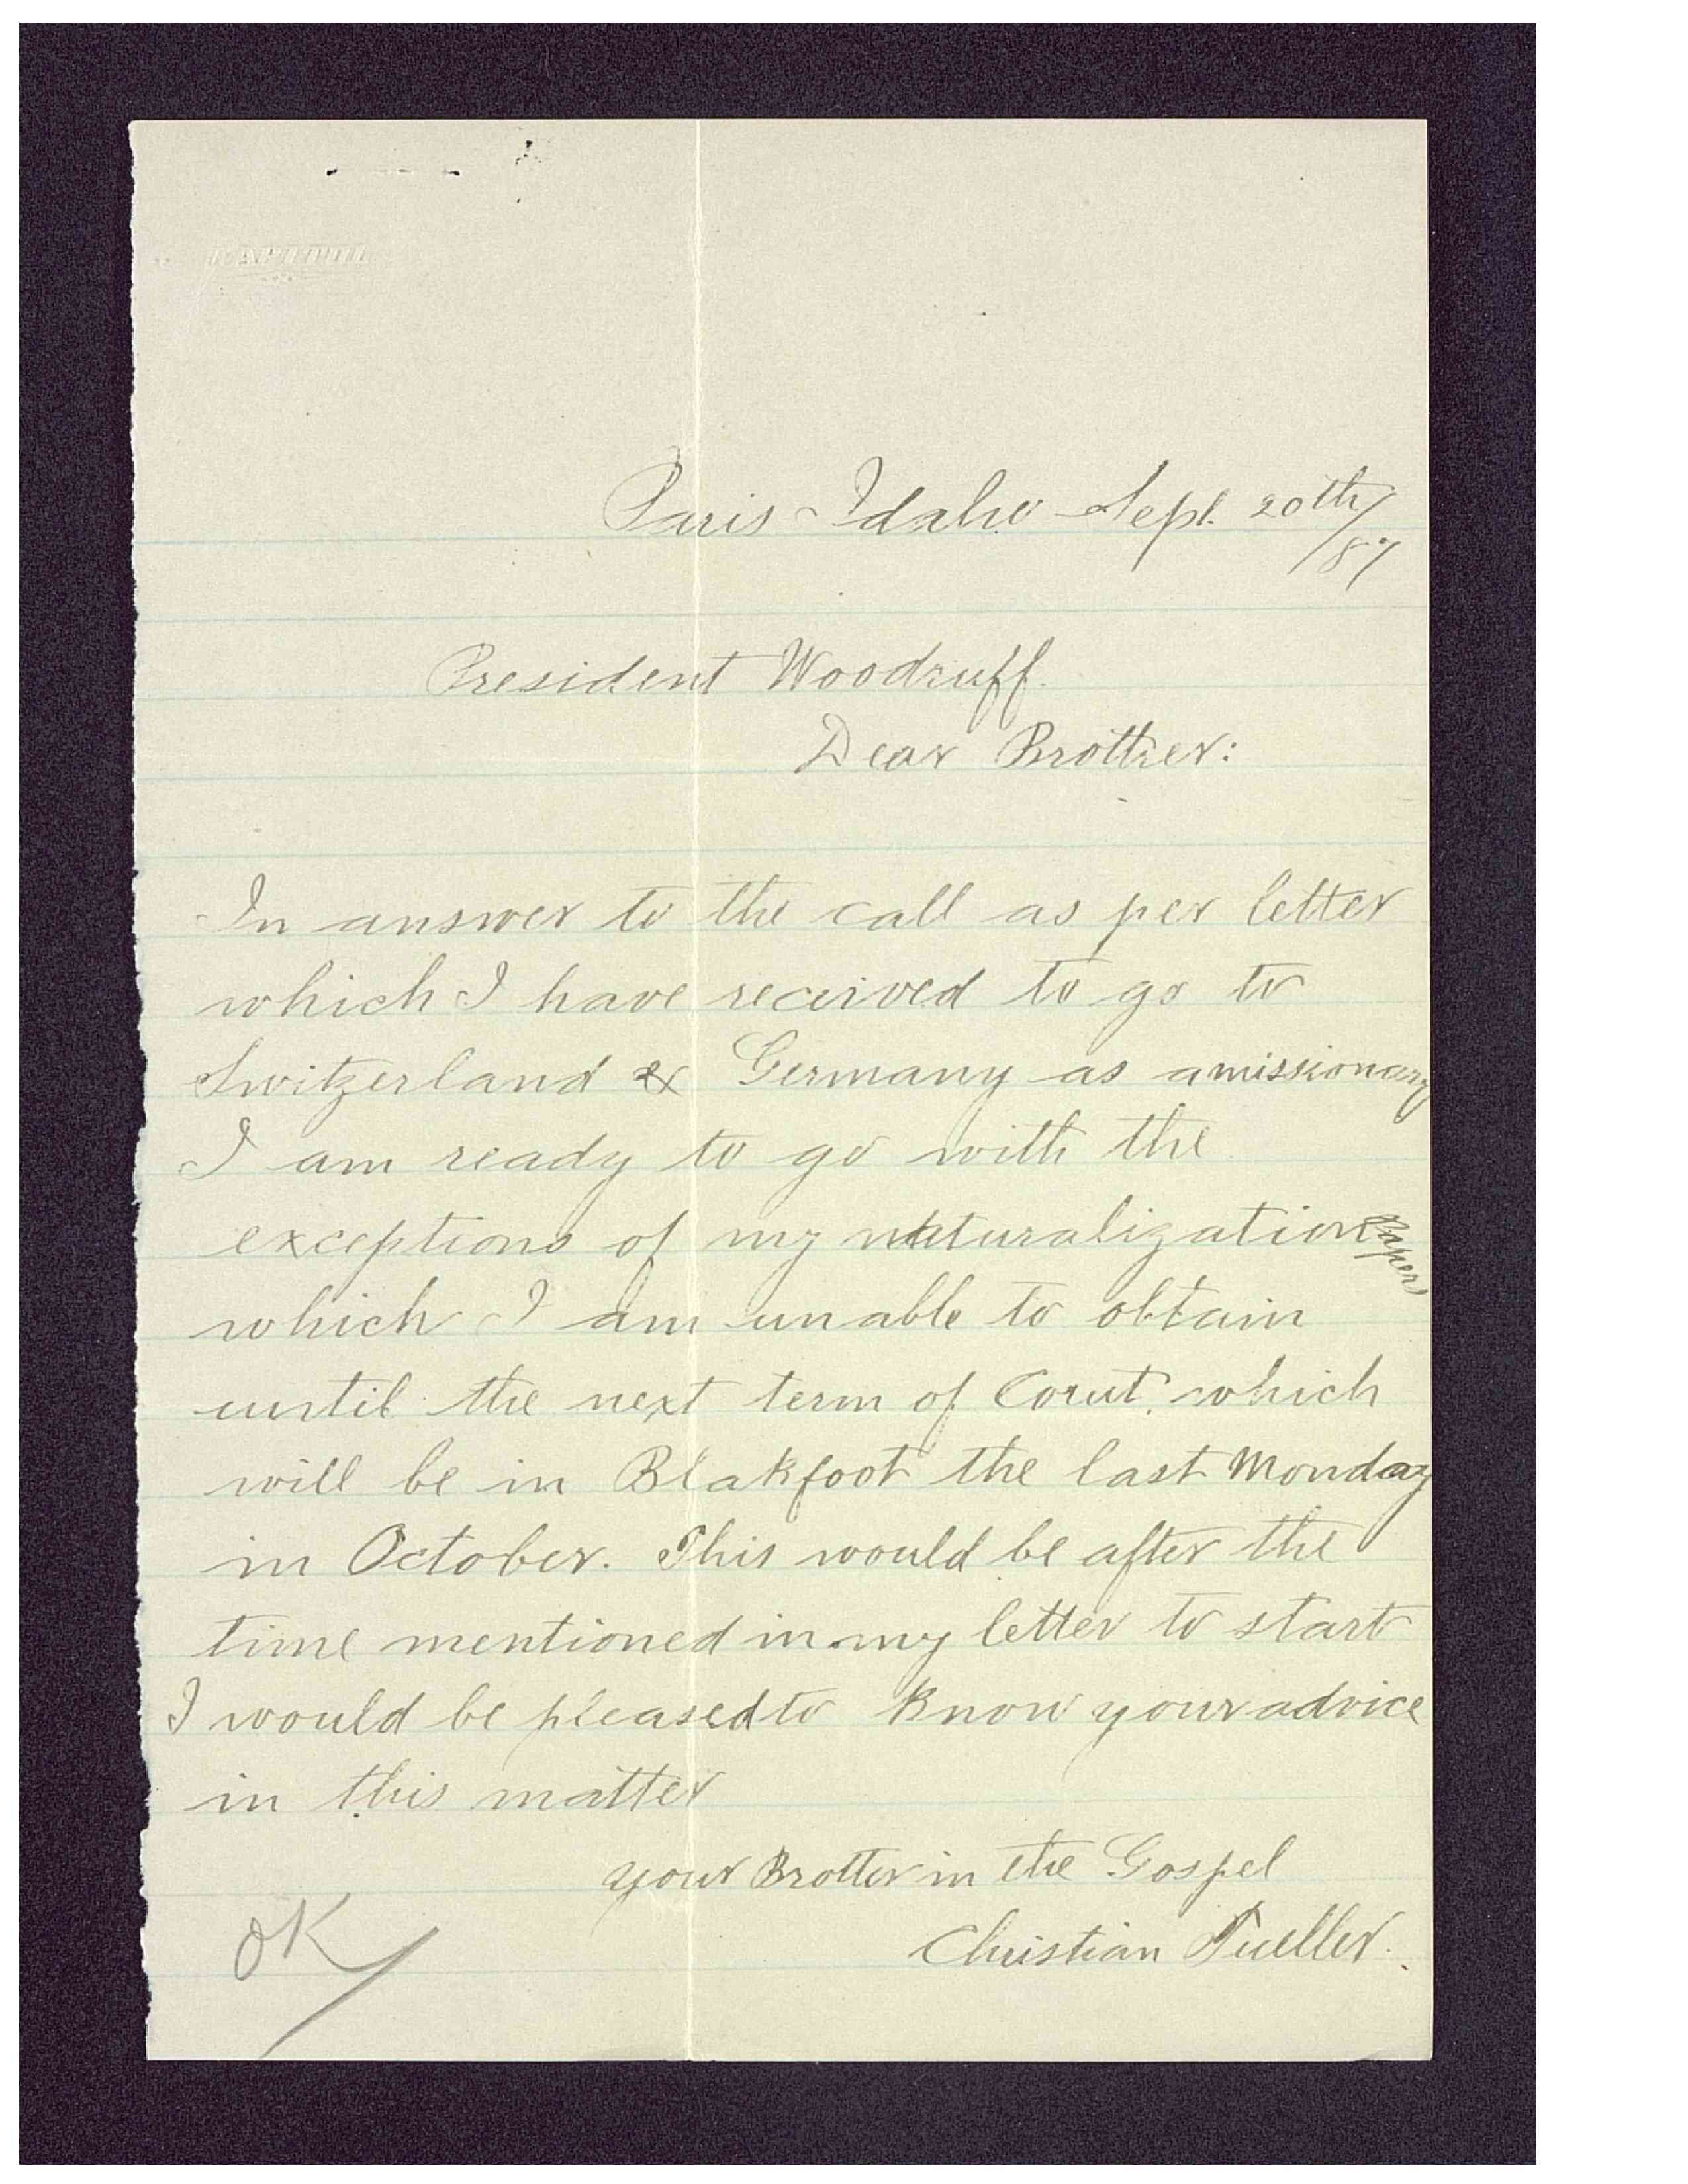 Paris Idaho Sept. 20th/87
President Woodruff.
Dear Brother:
In answer to the call as per letter
which I have received to go to
Switzerland & Germany as a missionary
I am ready to go with the
exceptions of my naturalization Papers
which I am unable to obtain
until the next term of Corut, which
will be in Blakfoot the last Monday
in October. This would be after the
time mentioned in my letter to start
I would be pleased to know your advice
in this matter
your Brotter in the Gospel
Christian Tueller.
OK